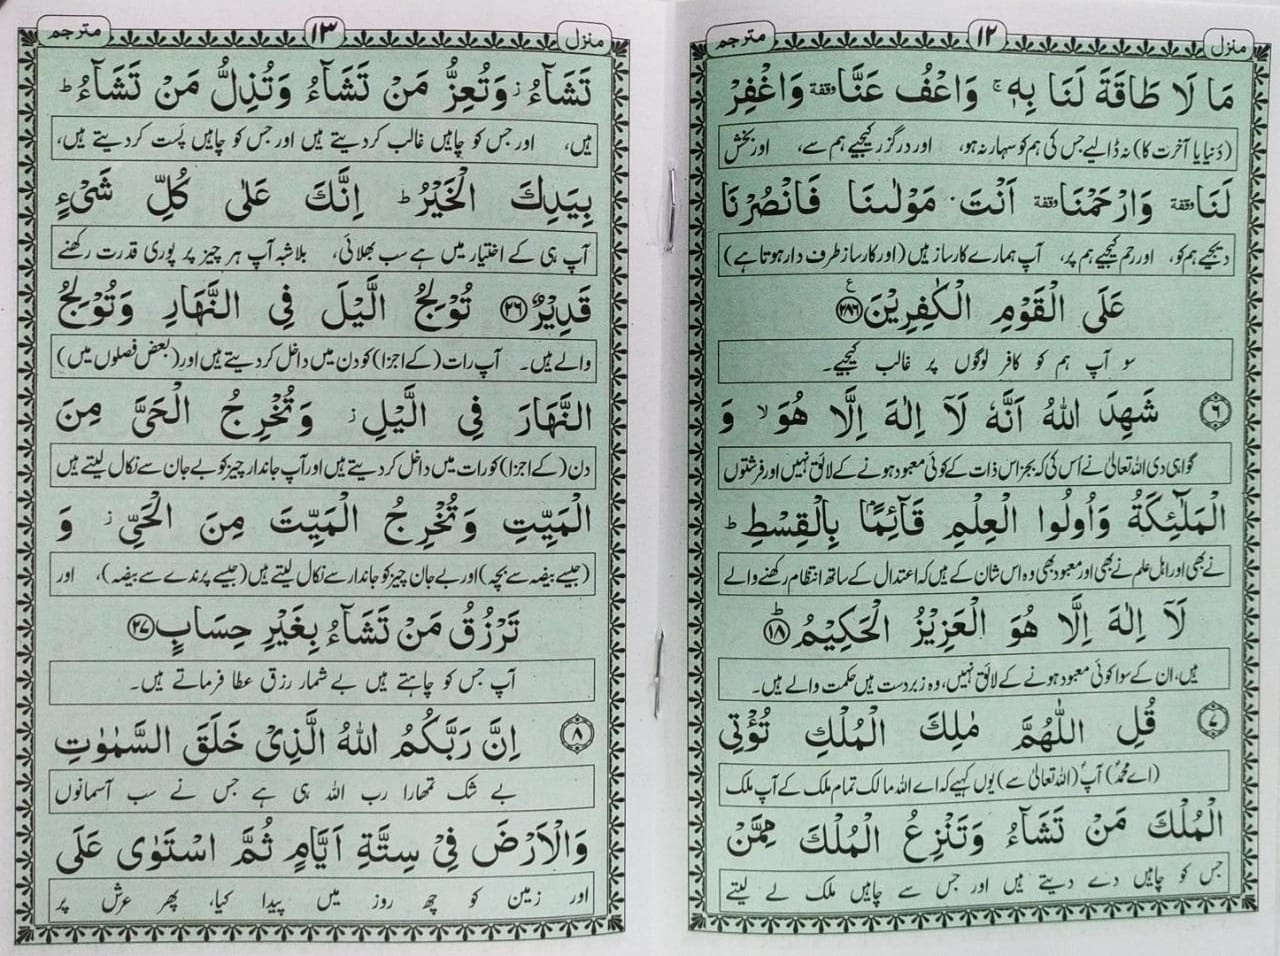 منزل ۱۲ مترجم
مَا لَا طَاقَةَ لَنَا بِهٖ ۚ وَاعْفُ عَنَّا وقفة وَاغْفِرْ
(دُنیا یا آخرت کا) نہ ڈالیے جس کی ہم کو سہار نہ ہو، اور درگزر کیجیے ہم سے، اور بخش
لَنَا وقفة وَارْحَمْنَا وقفة اَنْتَ مَوْلٰىنَا فَانْصُرْنَا
دیجیے ہم کو، اور رحم کیجیے ہم پر، آپ ہمارے کارساز ہیں (اور کارساز طرف دار ہوتا ہے)
عَلَى الْقَوْمِ الْكٰفِرِيْنَ ۲۸۶ ع
سو آپ ہم کو کافر لوگوں پر غالب کیجیے۔
۶ شَهِدَ اللّٰهُ اَنَّهٗ لَآ اِلٰهَ اِلَّا هُوَ ۙ وَ
گواہی دی اللہ تعالیٰ نے اس کی کہ بجز اس ذات کے کوئی معبود ہونے کے لائق نہیں اور فرشتوں
الْمَلٰٓئِكَةُ وَاُولُوا الْعِلْمِ قَآئِمًاۢ بِالْقِسْطِ ؕ
نے بھی اور اہل علم نے بھی اور معبود بھی وہ اس شان کے ہیں کہ اعتدال کے ساتھ انتظام رکھنے والے
لَآ اِلٰهَ اِلَّا هُوَ الْعَزِيْزُ الْحَكِيْمُ ؕ ۱۸
ہیں، ان کے سوا کوئی معبود ہونے کے لائق نہیں، وہ زبردست ہیں حکمت والے ہیں۔
۷ قُلِ اللّٰهُمَّ مٰلِكَ الْمُلْكِ تُؤْتِي
(اے محمدؐ) آپؐ (اللہ تعالیٰ سے) یوں کہیے کہ اے اللہ مالک تمام ملک کے آپ ملک
الْمُلْكَ مَنْ تَشَآءُ وَتَنْزِعُ الْمُلْكَ مِمَّنْ
جس کو چاہیں دے دیتے ہیں اور جس سے چاہیں ملک لے لیتے
منزل ۱۳ مترجم
تَشَآءُ ز وَتُعِزُّ مَنْ تَشَآءُ وَتُذِلُّ مَنْ تَشَآءُ ؕ
ہیں، اور جس کو چاہیں غالب کر دیتے ہیں اور جس کو چاہیں پَست کر دیتے ہیں،
بِيَدِكَ الْخَيْرُ ؕ اِنَّكَ عَلٰى كُلِّ شَىْءٍ
آپ ہی کے اختیار میں ہے سب بھلائی، بلاشبہ آپ ہر چیز پر پوری قدرت رکھنے
قَدِيْرٌ ۲۶ تُوْلِجُ الَّيْلَ فِى النَّهَارِ وَتُوْلِجُ
والے ہیں۔ آپ رات (کے اجزا) کو دن میں داخل کر دیتے ہیں اور (بعض فصلوں میں)
النَّهَارَ فِى الَّيْلِ ز وَتُخْرِجُ الْحَىَّ مِنَ
دن (کے اجزا) کو رات میں داخل کر دیتے ہیں اور آپ جاندار چیز کو بے جان سے نکال لیتے ہیں
الْمَيِّتِ وَتُخْرِجُ الْمَيِّتَ مِنَ الْحَىِّ ز وَ
(جیسے بیضہ سے بچہ) اور بے جان چیز کو جاندار سے نکال لیتے ہیں (جیسے پرندے سے بیضہ)، اور
تَرْزُقُ مَنْ تَشَآءُ بِغَيْرِ حِسَابٍ ۲۷
آپ جس کو چاہتے ہیں بے شمار رزق عطا فرماتے ہیں۔
۸ اِنَّ رَبَّكُمُ اللّٰهُ الَّذِىْ خَلَقَ السَّمٰوٰتِ
بے شک تمھارا رب اللہ ہی ہے جس نے سب آسمانوں
وَالْاَرْضَ فِىْ سِتَّةِ اَيَّامٍ ثُمَّ اسْتَوٰى عَلَى
اور زمین کو چھ روز میں پیدا کیا، پھر عرش پر